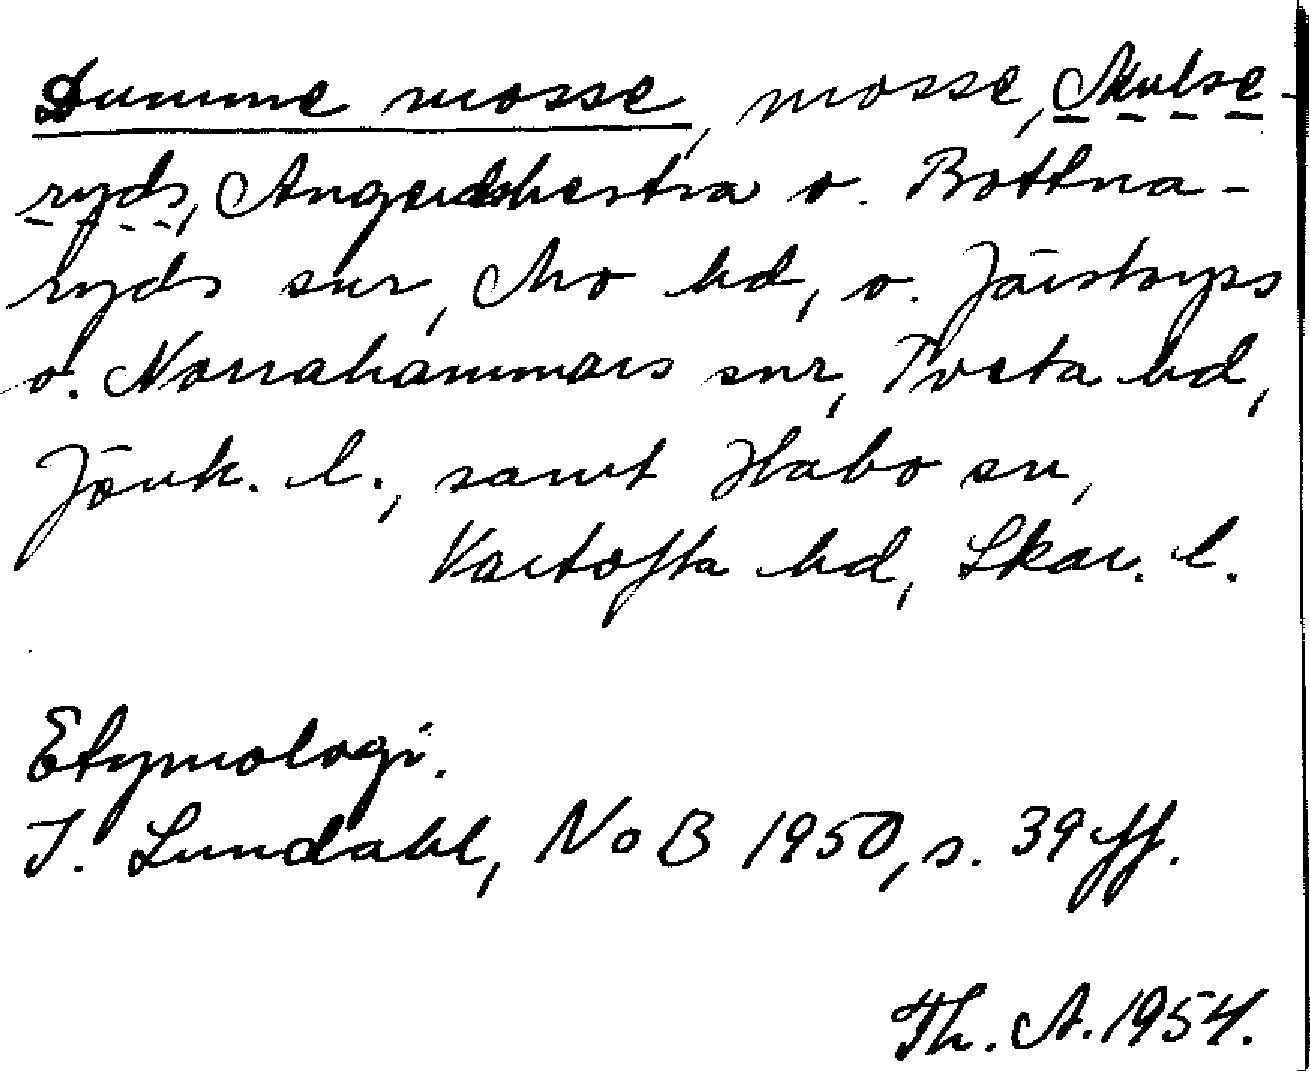 Dumme mosse, mosse, Mulse-
ryds, Angerdshestra o. Bottna-
ryds snr, Mo hd, o. Järstorps
o. Norrahammars snr, Tveta hd,
Jönk. l., samt Habo sn,
Vartofta hd, Skar. l.
Etymologi.
I. Lundahl, NoB 1950, s. 39 ff.
Th. A. 1954.